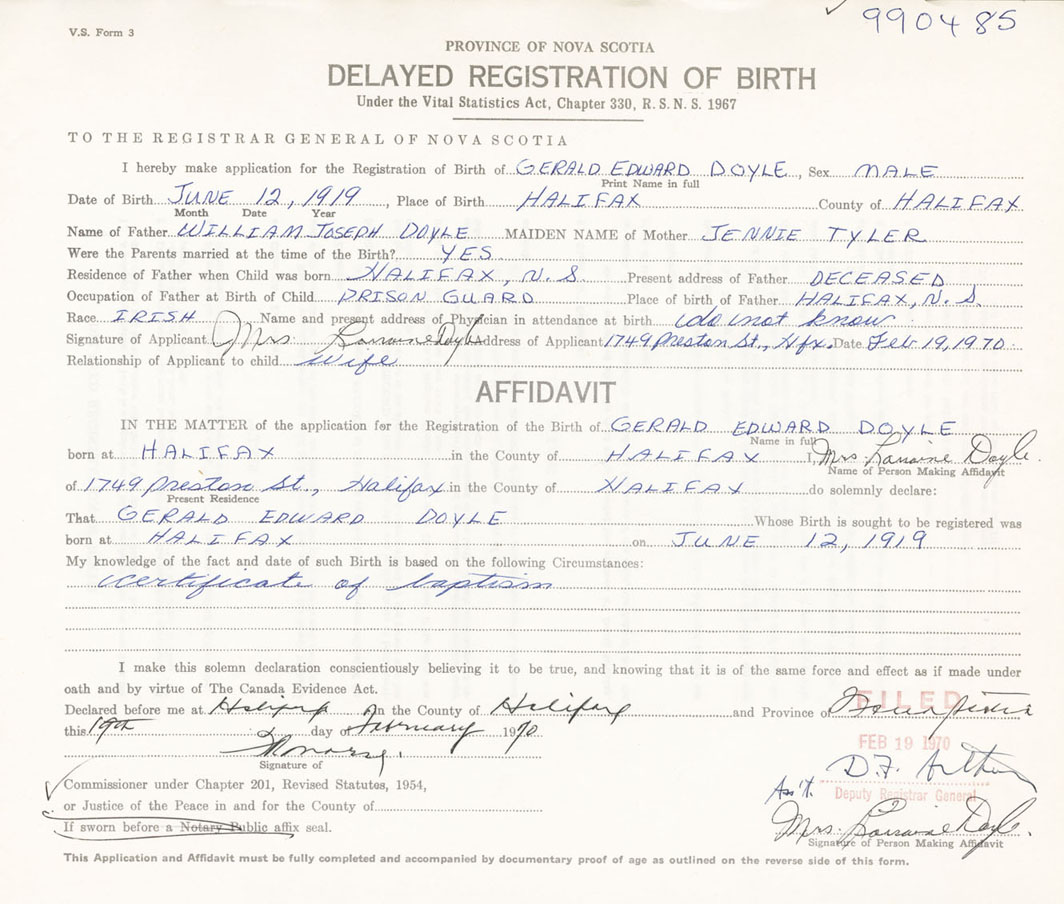 990485
V.S. Form 3
PROVINCE OF NOVA SCOTIA
DELAYED REGISTRATION OF BIRTH
Under the Vital Statistics Act, Chapter 330, R. S. N. S. 1967
TO THE REGISTRAR GENERAL OF NOVA SCOTIA
I hereby make application for the Registration of Birth of GERALD EDWARD DOYLE, Sex MALE
Print Name in full
Date of Birth JUNE 12, 1919, Place of Birth HALIFAX County of HALIFAX
Month Date Year
Name of Father WILLIAM JOSEPH DOYLE MAIDEN NAME of Mother JENNIE TYLER
Were the Parents married at the time of the Birth? YES
Residence of Father when Child was born HALIFAX, N. S. Present address of Father DECEASED
Occupation of Father at Birth of Child PRISON GUARD Place of birth of Father HALIFAX, N. S.
Race IRISH Name and present address of Physician in attendance at birth I do not know
Signature of Applicant Mrs Lorraine Doyle Address of Applicant 1749 Preston St., Hfx. Date Feb 19, 1970
Relationship of Applicant to child wife
AFFIDAVIT
IN THE MATTER of the application for the Registration of the Birth of GERALD EDWARD DOYLE
Name in full
born at HALIFAX in the County of HALIFAX I, Mrs Lorraine Doyle.
Name of Person Making Affidavit
of 1749 Preston St., Halifax in the County of HALIFAX do solemnly declare:
Present Residence
That GERALD EDWARD DOYLE Whose Birth is sought to be registered was
born at HALIFAX on JUNE 12, 1919
My knowledge of the fact and date of such Birth is based on the following Circumstances:
certificate of baptism
I make this solemn declaration conscientiously believing it to be true, and knowing that it is of the same force and effect as if made under
oath and by virtue of The Canada Evidence Act.
Declared before me at Halifax In the County of Halifax and Province of Nova Scotia
FILED
this 19th day of February 1970
FEB 19 1970
Signature of
D.F. Arthur
Commissioner under Chapter 201, Revised Statutes, 1954,
Ass't. Deputy Registrar General
or Justice of the Peace in and for the County of
Mrs. Lorraine Doyle.
If sworn before a Notary Public affix seal.
Signature of Person Making Affidavit
This Application and Affidavit must be fully completed and accompanied by documentary proof of age as outlined on the reverse side of this form.